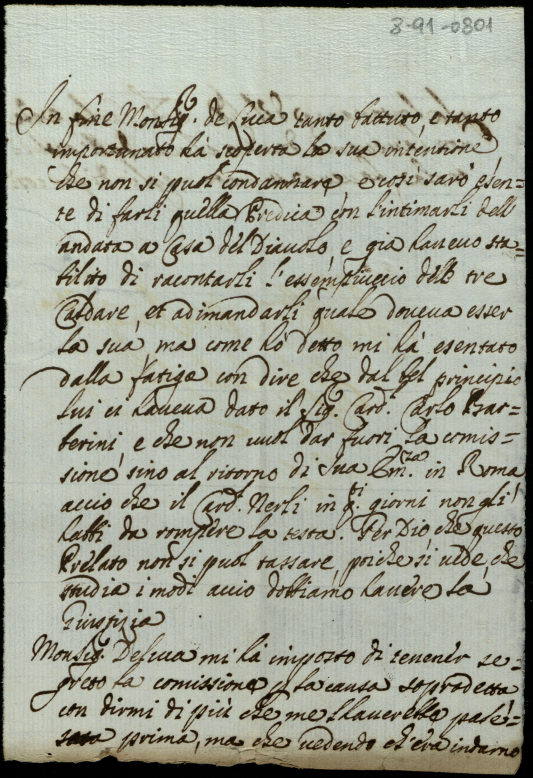 8-91-0801
In fine Monsig.r de Luca tanto battuto, e tanto
importunato hà scoperta la sua intentione
che non si puol condannare, e così sarò esen=
te di farli quella Predica con l'intimarli dell
andata a Casa del Diavolo, e già havevo sta=
bilito di racontarli l'essempiuccio delle tre
Caldare, et adimandarli quale doveva esser
la sua, ma come hò detto mi hà esentato
dalla fatiga con dire che dal bel principio
lui ci haveva dato il Sig. Card. Carlo Bar=
berini, e che non vuol dar fuori la comis=
sione sino al ritorno di Sua Em.za in Roma
acciò che il Card. Nerli in q.ti giorni non gli
habbi da rompere la testa. Per Dio che questo
Prelato non si puol tassare, poiche si vede, che
studia i modi acciò dobbiamo havere la
Giustizia
Monsig. De Luca mi hà imposto di tenere se=
greto la comissione p la causa sopradetta
con dirmi di più che me l'haverebbe pale=
sata prima, ma che vedendo ch'era indarno